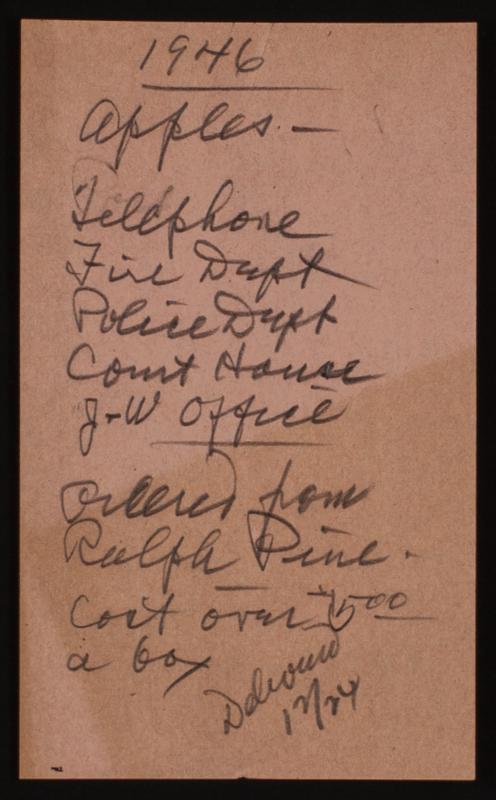 1946
Apples. —
Telephone
Fire Dept
Police Dept
Court House
J-W Office
Ordered from
Ralph Pine.
Cost over $5.00
a box
Delivered
12/24